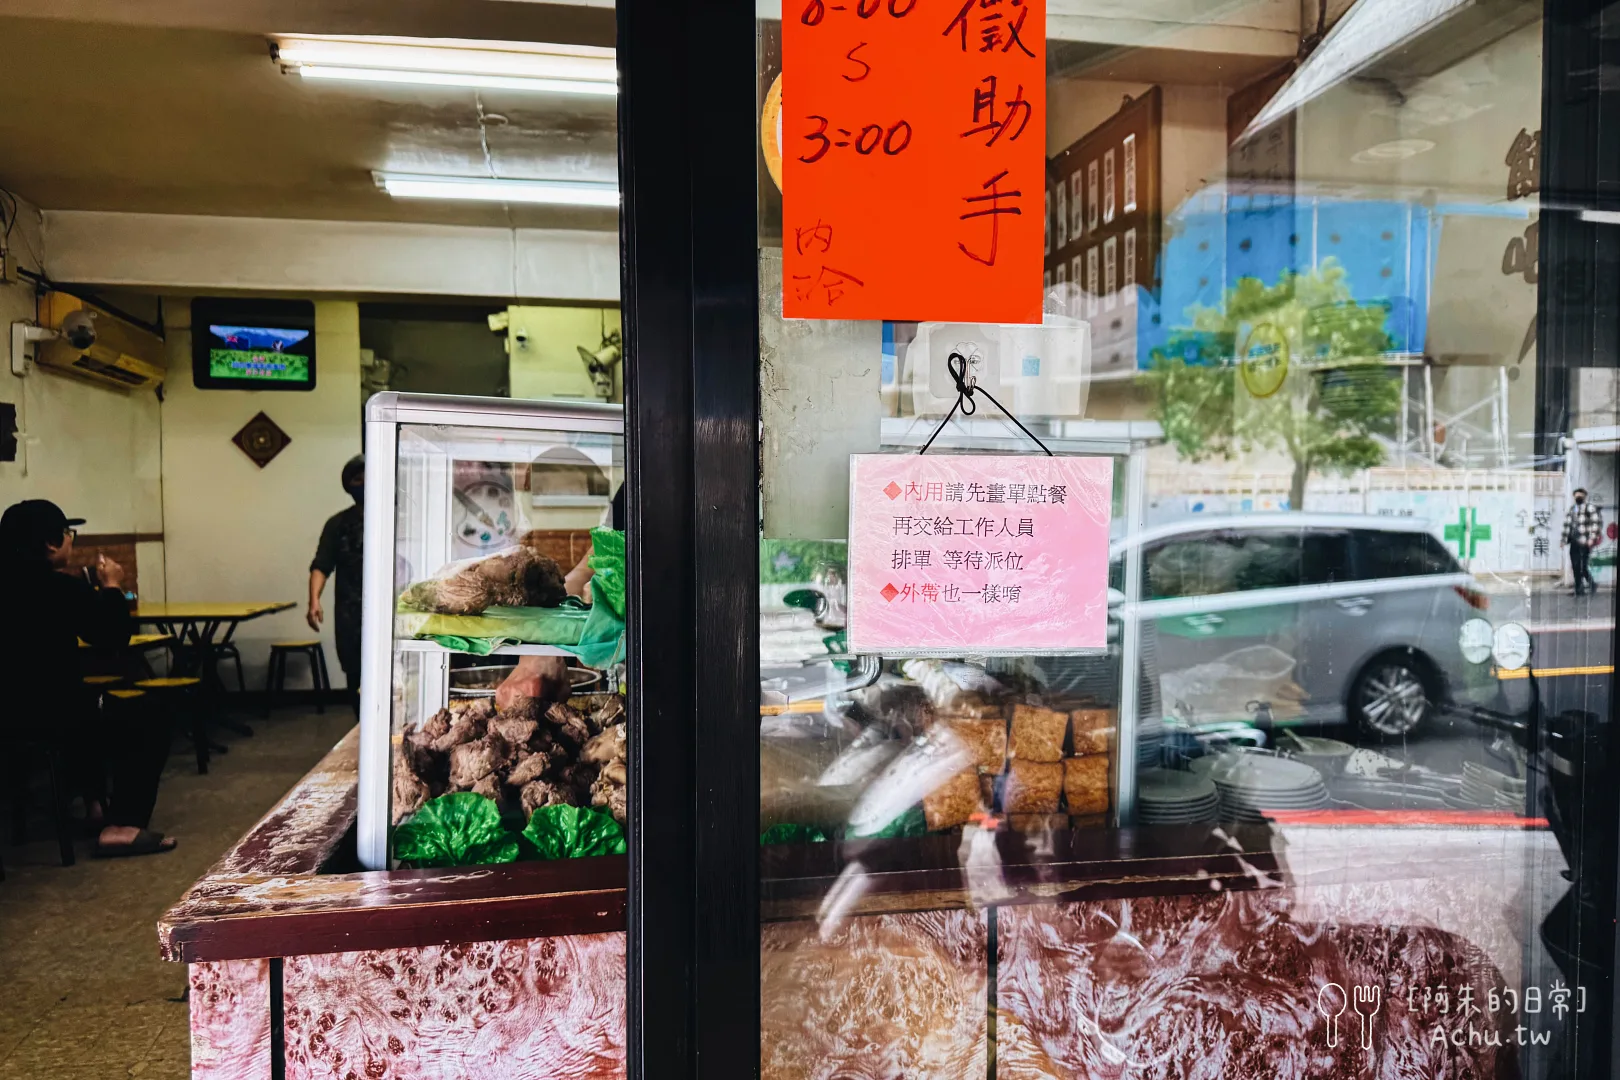 徵助手
8=00
S
3=00
內
洽
◆內用請先畫單點餐
再交給工作人員
排單 等待派位
◆外帶也一樣唷
[阿朱的日常]
Achu.tw